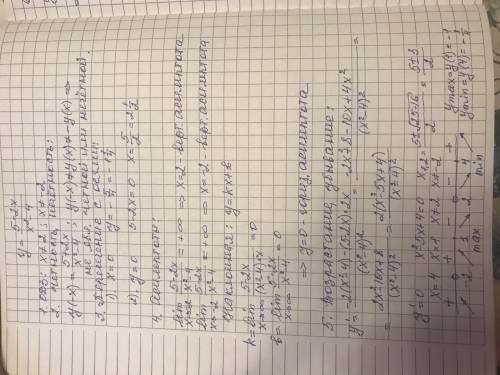 y = (5-2x)/(x²-4)
1. ООЗ: x≠2 x≠-2
2. четность, нечетность:
y(-x) = (5+2x)/(x²-4); y(-x)≠y(x)≠-y(x) ⇒
не явл. четной или нечётной.
3. Пересечение с осями:
1) x=0 y=-5/4=-1 1/4
2) y=0 5-2x=0 x=5/2=2 1/2
4. Асимптоты:
lim x→2 (5-2x)/(x²-4) = +∞ ⇒ x=2 - верт. асимптота
lim x→-2 (5-2x)/(x²-4) = +∞ ⇒ x=-2 - верт. асимптота
Наклонная: y=kx+b
k = lim x→∞ (5-2x)/((x²-4)·x) = 0
b = lim x→∞ (5-2x)/(x²-4) = 0
⇒ y=0 - гориз. асимптота
5. Возрастание, убывание:
y' = (-2(x²-4)-(5-2x)·2x)/(x²-4)² = (-2x²+8-10x+4x²)/(x²-4)² =
= (2x²-10x+8)/(x²-4)² = 2(x²-5x+4)/(x²-4)²
y'=0 x²-5x+4=0 x₁,₂ = (5±√25-16)/2 = (5±3)/2
x=4 x=1 x≠2 x≠-2
+ + 0 - - 0 +
-2 1 2 4
max min
y max = y(1) = -1
y min = y(4) = -1/4